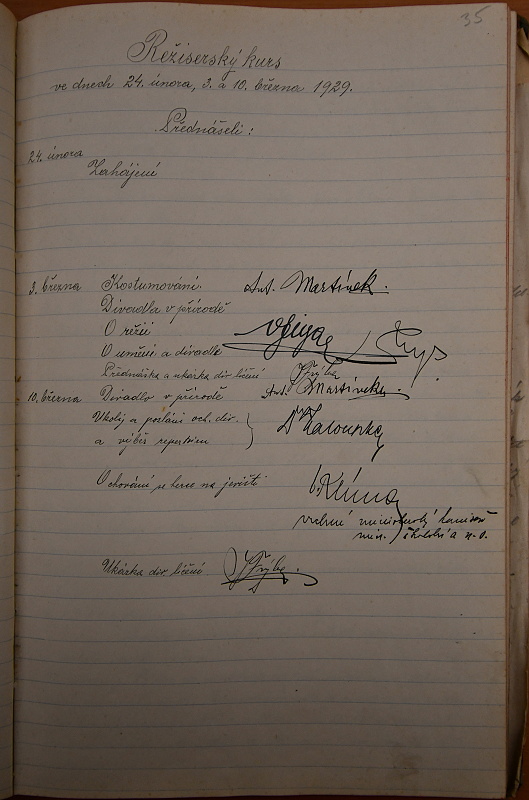 35
Režiserský kurs
ve dnech 24. února, 3. a 10. března 1929.
Přednášeli:
24. února
Zahájení
3. března Kostumování. Ant. Martínek.
Divadla v přírodě
O režii
O umění a divadle
Přednáška a ukázka div. líčení Fryba
10. března Divadlo v přírodě Ant. Martínek.
Úkoly a poslání och. div.
a výběr repertoiru Dr Zaloupka
O chování se herce na jevišti Klíma
vrchní ministerský komisař
min. školství a n. o.
Ukázka div. líčení Fryba.